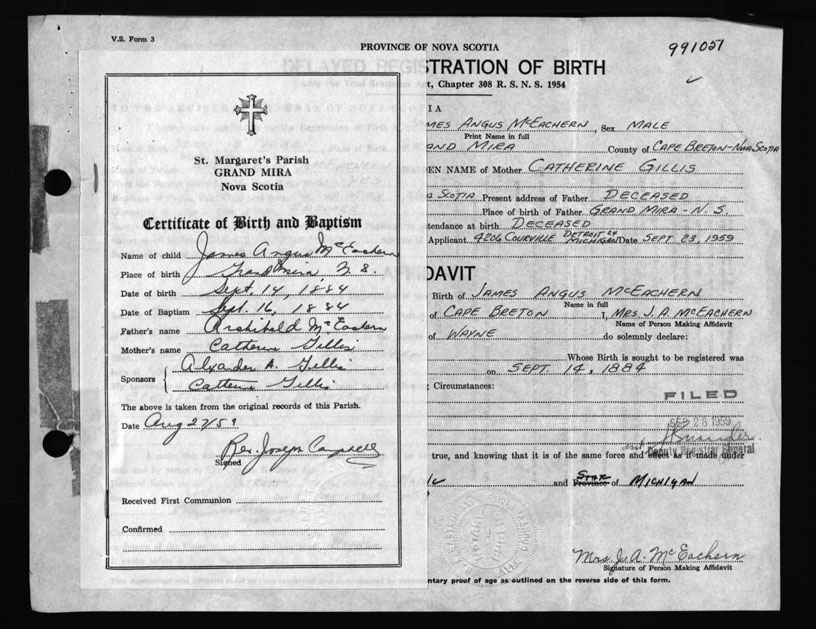 V.S. Form 3
PROVINCE OF NOVA SCOTIA
991051
DELAYED REGISTRATION OF BIRTH
t, Chapter 308 R. S. N. S. 1954
St. Margaret's Parish
GRAND MIRA
Nova Scotia
Certificate of Birth and Baptism
Name of child James Angus McEachern
Place of birth Grand Mira, N. S.
Date of birth Sept. 14, 1884
Date of Baptism Sept. 16, 1884
Father's name Archibald McEachern
Mother's name Catherine Gillis
Sponsors { Alxander A. Gillis
Catherine Gillis
The above is taken from the original records of this Parish.
Date Aug 27/59
Rev. Joseph Campbell
Signed
Received First Communion
Confirmed
IA
MES ANGUS McEACHERN, Sex MALE
Print Name in full
AND MIRA County of CAPE BRETON-NOVA SCOTIA
EN NAME of Mother CATHERINE GILLIS
A SCOTIA Present address of Father DECEASED
Place of birth of Father GRAND MIRA - N. S.
tendance at birth DECEASED
Applicant 4206 COURVILLE DETROIT 24 MICHIGAN Date SEPT 23, 1959
DAVIT
Birth of JAMES ANGUS McEACHERN
Name in full
of CAPE BRETON I, MRS. J. A. McEACHERN
Name of Person Making Affidavit
of WAYNE do solemnly declare:
Whose Birth is sought to be registered was
on SEPT. 14, 1884
Circumstances:
FILED
SEP 28 1959
Deputy Registrar General
true, and knowing that it is of the same force and effect as if made under
and Province STATE of MICHIGAN
Mrs. J. A. McEachern
Signature of Person Making Affidavit
ntary proof of age as outlined on the reverse side of this form.